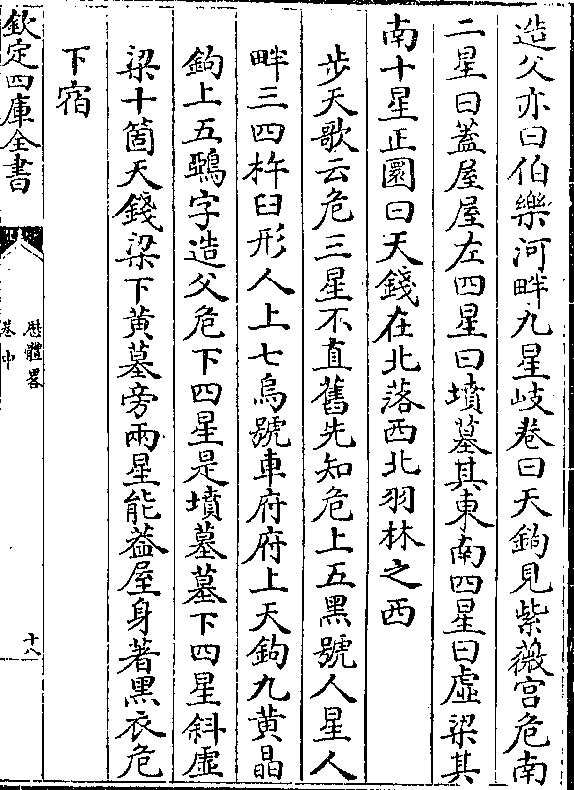 造父亦曰伯樂河畔九星岐巻曰天鉤見紫薇宫危南
二星曰蓋屋屋左四星曰墳墓其東南四星曰虛梁其
南十星正圜曰天錢在北落西北羽林之西
步天歌云危三星不直舊先知危上五黑號人星人
畔三四杵臼形人上七烏號車府府上天鉤九黄晶
鉤上五鴉字造父危下四星是墳墓墓下四星斜虛
梁十箇天錢梁下黄墓旁兩星能葢屋身著黑衣危
下宿
欽定四庫全書
厯體畧
卷中
十八